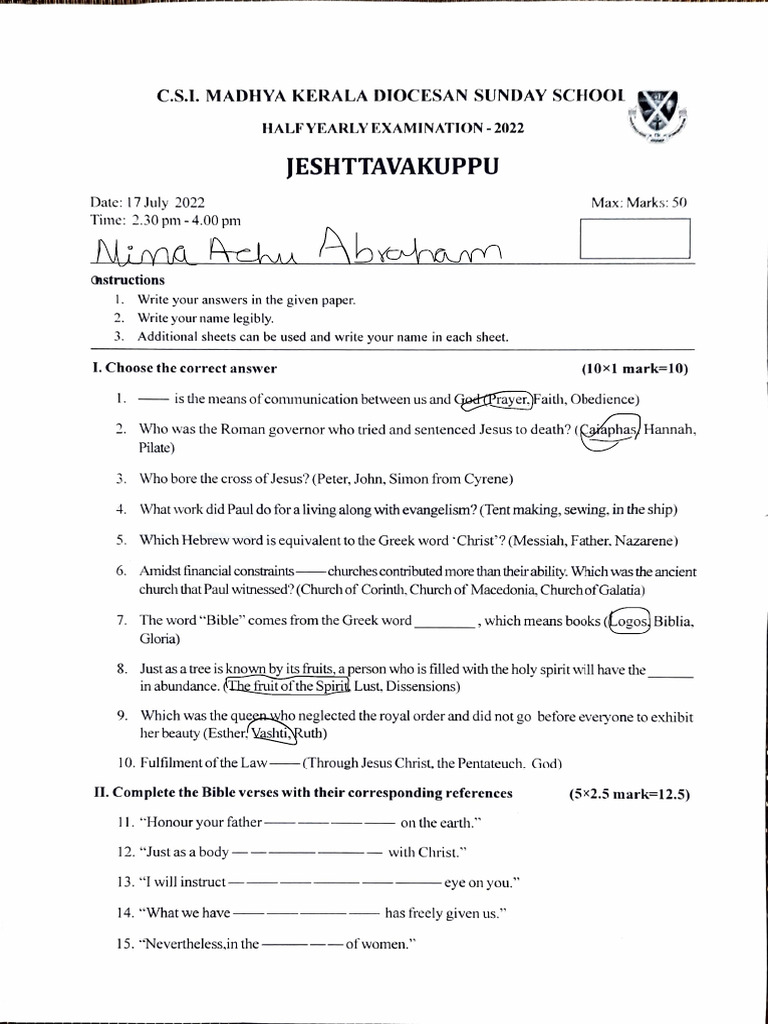 C.S.I. MADHYA KERALA DIOCESAN SUNDAY SCHOOL
HALF YEARLY EXAMINATION - 2022
JESHTTAVAKUPPU
Date: 17 July 2022 Max: Marks: 50
Time: 2.30 pm - 4.00 pm
Nima Achu Abraham
Instructions
1. Write your answers in the given paper.
2. Write your name legibly.
3. Additional sheets can be used and write your name in each sheet.
I. Choose the correct answer (10×1 mark=10)
1. —— is the means of communication between us and God (Prayer, Faith, Obedience)
2. Who was the Roman governor who tried and sentenced Jesus to death? (Caiaphas, Hannah,
Pilate)
3. Who bore the cross of Jesus? (Peter, John, Simon from Cyrene)
4. What work did Paul do for a living along with evangelism? (Tent making, sewing, in the ship)
5. Which Hebrew word is equivalent to the Greek word ‘Christ’? (Messiah, Father, Nazarene)
6. Amidst financial constraints —— churches contributed more than their ability. Which was the ancient
church that Paul witnessed? (Church of Corinth, Church of Macedonia, Church of Galatia)
7. The word “Bible” comes from the Greek word ________ , which means books (Logos, Biblia,
Gloria)
8. Just as a tree is known by its fruits, a person who is filled with the holy spirit will have the ______
in abundance. (The fruit of the Spirit, Lust, Dissensions)
9. Which was the queen who neglected the royal order and did not go before everyone to exhibit
her beauty (Esther, Vashti, Ruth)
10. Fulfilment of the Law —— (Through Jesus Christ, the Pentateuch, God)
II. Complete the Bible verses with their corresponding references (5×2.5 mark=12.5)
11. “Honour your father — — — — on the earth.”
12. “Just as a body — — — — — with Christ.”
13. “I will instruct — — — — — — eye on you.”
14. “What we have — — — — — has freely given us.”
15. “Nevertheless,in the — — — — of women.”